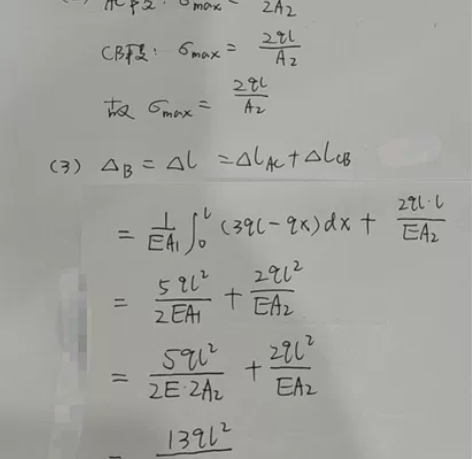 AC段: σmax = 2A₂
CB段: σmax = 2ql/A₂
故 σmax = 2ql/A₂
(3) Δ_B = Δl = Δl_AC + Δl_CB
= 1/EA₁ ∫₀ˡ (3ql - qx)dx + 2ql·l/EA₂
= 5ql²/2EA₁ + 2ql²/EA₂
= 5ql²/2E·2A₂ + 2ql²/EA₂
= 13ql²